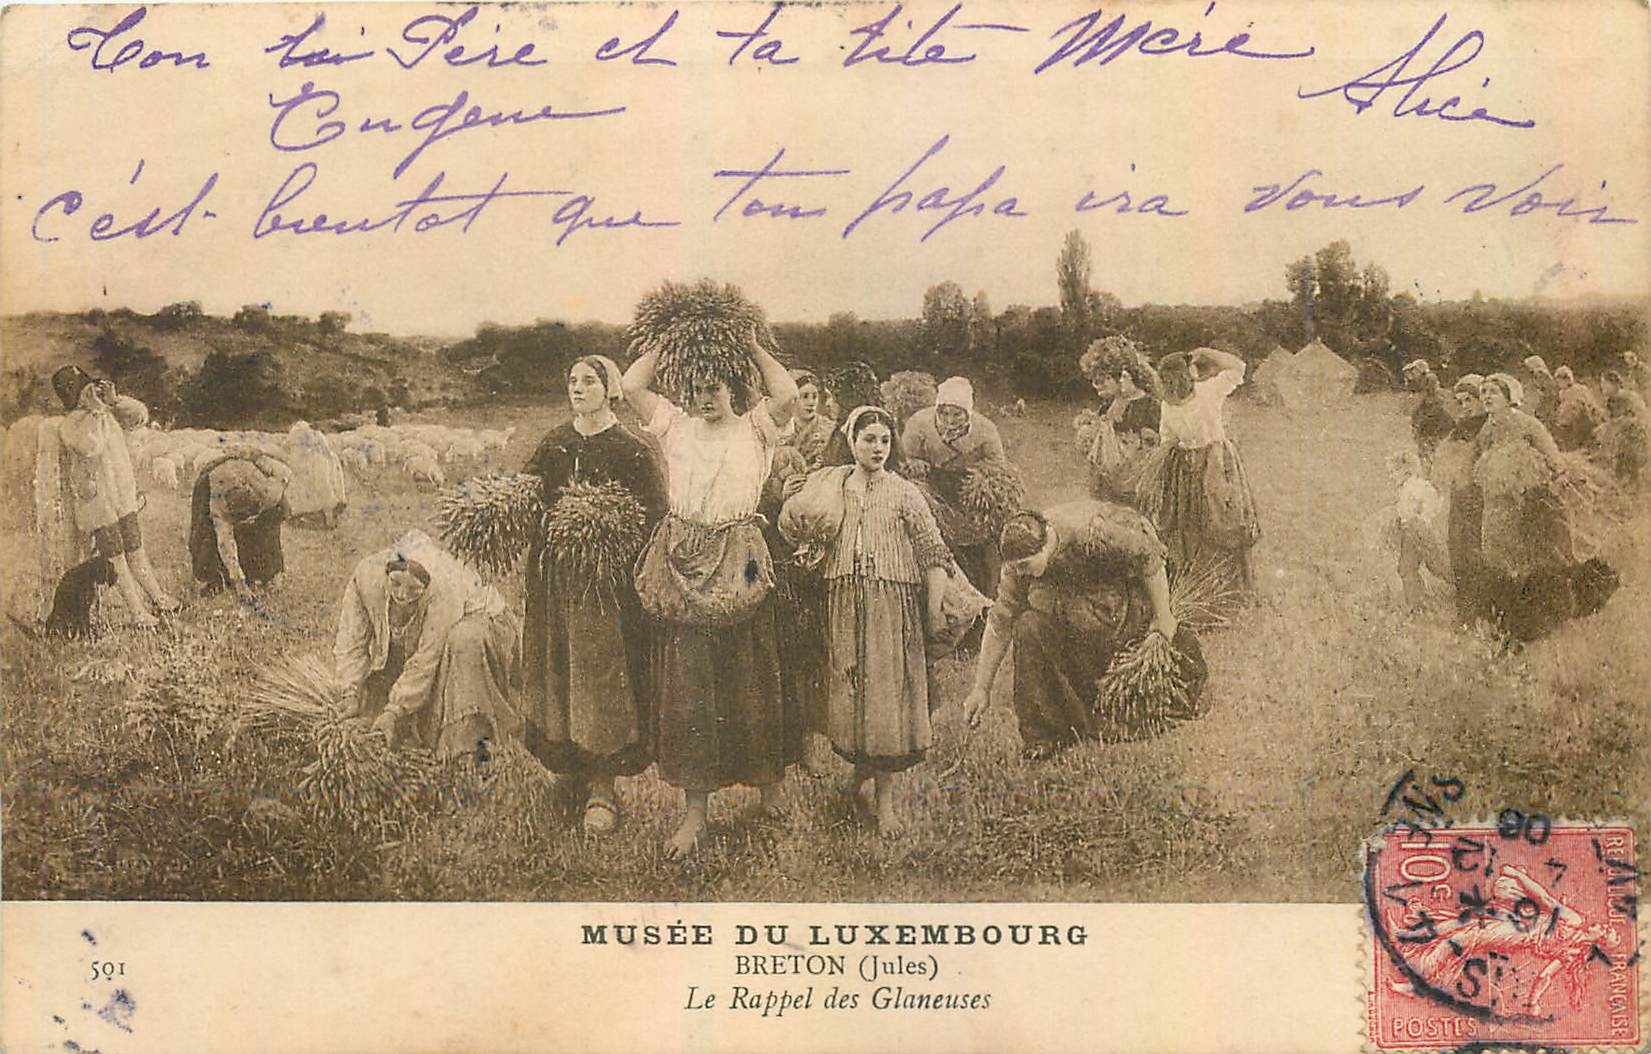 Ton Père et ta tite Mère
Eugene Alice
c'est bientot que ton papa ira vous voir
MUSÉE DU LUXEMBOURG
501
BRETON (Jules)
Le Rappel des Glaneuses
10c
POSTES
12
10
4
06